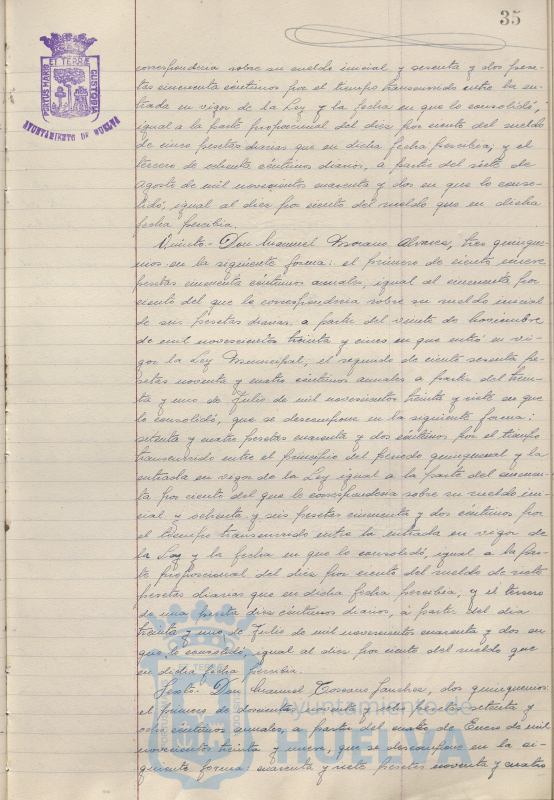 35
PORTUS MARIS ET TERRÆ CUSTODIA
AYUNTAMIENTO DE HUELVA
correspondería sobre su sueldo inicial y sesenta y dos pese-
tas cincuenta céntimos por el tiempo transcurrido entre la en-
trada en vigor de la Ley y la fecha en que lo consolidó,
igual a la parte proporcional del diez por ciento del sueldo
de cinco pesetas diarias que en dicha fecha percibía; y el
tercero de ochenta céntimos diarios, a partir del siete de
Agosto de mil novecientos cuarenta y dos en que lo conso-
lidó, igual al diez por ciento del sueldo que en dicha
fecha percibía.
Quinto.- Don Manuel Moreano Alvarez, tres quinque-
nios en la siguiente forma: el primero de ciento nueve
pesetas cincuenta céntimos anuales, igual al cincuenta por
ciento del que le correspondería sobre su sueldo inicial
de seis pesetas diarias, a partir del veinte de Noviembre
de mil novecientos treinta y cinco en que entró en vi-
gor la Ley Municipal, el segundo de ciento sesenta pe-
setas noventa y cuatro céntimos anuales a partir del trein-
ta y uno de Julio de mil novecientos treinta y siete en que
lo consolidó, que se descompone en la siguiente forma:
setenta y cuatro pesetas cuarenta y dos céntimos por el tiempo
transcurrido entre el principio del periodo quinquenal y la
entrada en vigor de la Ley igual a la parte del cincuen-
ta por ciento del que le correspondería sobre su sueldo ini-
cial y ochenta y seis pesetas cincuenta y dos céntimos por
el tiempo transcurrido entre la entrada en vigor de
la Ley y la fecha en que lo consolidó, igual a la par-
te proporcional del diez por ciento del sueldo de siete
pesetas diarias que en dicha fecha percibía, y el tercero
de una peseta diez céntimos diarios, a partir del día
treinta y uno de Julio de mil novecientos cuarenta y dos en
que lo consolidó, igual al diez por ciento del sueldo que
en dicha fecha percibía.
Sexto.- Don Manuel Toscano Sanchez, dos quinquenios:
el primero de doscientas noventa y ocho pesetas setenta y
ocho céntimos anuales, a partir del cuatro de Enero de mil
novecientos treinta y nueve, que se descompone en la si-
guiente forma: cuarenta y siete pesetas noventa y cuatro
Ayuntamiento de
HUELVA